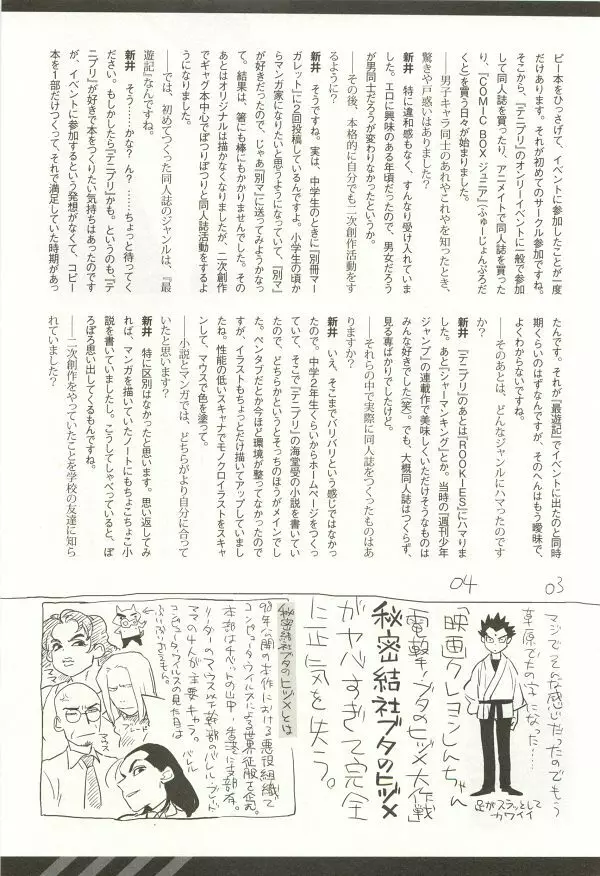 ピー本をひっさげて、イベントに参加したことが一度
だけあります。それが初めてのサークル参加ですね。
そこから、『テニプリ』のオンリーイベントに一般で参加
して同人誌を買ったり、アニメイトで同人誌を買った
り、『COMIC BOX ジュニア』(ふゅーじょんぷろだ
くと)を買う日々が始まりました。
──男子キャラ同士のあれやこれやを知ったとき、
驚きや戸惑いはありました?
新井 特に違和感もなく、すんなり受け入れていま
した。エロに興味のある年頃だったので、男女だろう
が男同士だろうが変わりなかったというか。
──その後、本格的に自分でも二次創作活動をす
るように?
新井 そうですね。実は、中学生のときに『別冊マー
ガレット』に2回投稿しているんですよ。小学生の頃か
らマンガ家になりたいと思うようになっていて、『別マ』
が好きだったので、じゃあ『別マ』に送ってみようかなっ
て。結果は、箸にも棒にもかかりませんでした。その
あとはオリジナルは描かなくなりましたが、二次創作
でギャグ本中心でぽつりぽつりと同人誌活動をするよ
うになりました。
──では、初めてつくった同人誌のジャンルは、『最
遊記』なんですね。
新井 そう……かな?ん?……ちょっと待ってく
ださい。もしかしたら『テニプリ』かも。というのも、『テ
ニプリ』が好きで本をつくりたい気持ちはあったのです
が、イベントに参加するという発想がなくて、コピー
本を1部だけつくって、それで満足していた時期があっ
たんです。それが『最遊記』でイベントに出たのと同時
期くらいのはずなんですが、そのへんはもう曖昧で、
よくわからないですね。
──そのあとは、どんなジャンルにハマったのです
か?
新井 『テニプリ』のあとは『ROOKIES』にハマりま
した。あと『シャーマンキング』とか。当時の『週刊少年
ジャンプ』の連載作で美味しくいただけそうなものは
みんな好きでした(笑)。でも、大概同人誌はつくらず、
見る専ばかりでしたけど。
──それらの中で実際に同人誌をつくったものはあ
りますか?
新井 いえ、そこまでバリバリという感じではなかっ
たので。中学2年生くらいからホームページをつくっ
ていて、そこで『テニプリ』の海堂受の小説を書いてい
たので、どちらかというとそっちのほうがメインでし
た。ペンタブだとか今ほど環境が整ってなかったので
すが、イラストもちょっとだけ描いてアップしていまし
たね。性能の低いスキャナでモノクロイラストをスキャ
ンして、マウスで色を塗って。
──小説とマンガでは、どちらがより自分に合って
いたと思います?
新井 特に区別はなかったと思います。思い返してみ
れば、マンガを描いていたノートにもちょこちょこ小
説を書いていましたし。こうしてしゃべっていると、ぽ
ろぽろ思い出してくるもんですね。
──二次創作をやっていたことを学校の友達に知ら
れていました?
03
マジでそんな感じだったのでもう
草原で大の字になった……
足がスラッとして
カワイイ
04
「映画クレヨンしんちゃん
電撃!ブタのヒヅメ大作戦
秘密結社ブタのヒヅメ
がヤバすぎて完全
に正気を失う。
秘密結社ブタのヒヅメとは
98年公開の本作における悪役組織で
コンピュータウイルスによる世界征服を企む。
本部はチベットの山中・香港に支部有。
リーダーのマウス以下幹部のバレル・ブレード・
ママの4人が主要キャラ。
コンピュータウイルスの見た目は
ぶりぶりざえもん。
ブレード
マウス
バレル